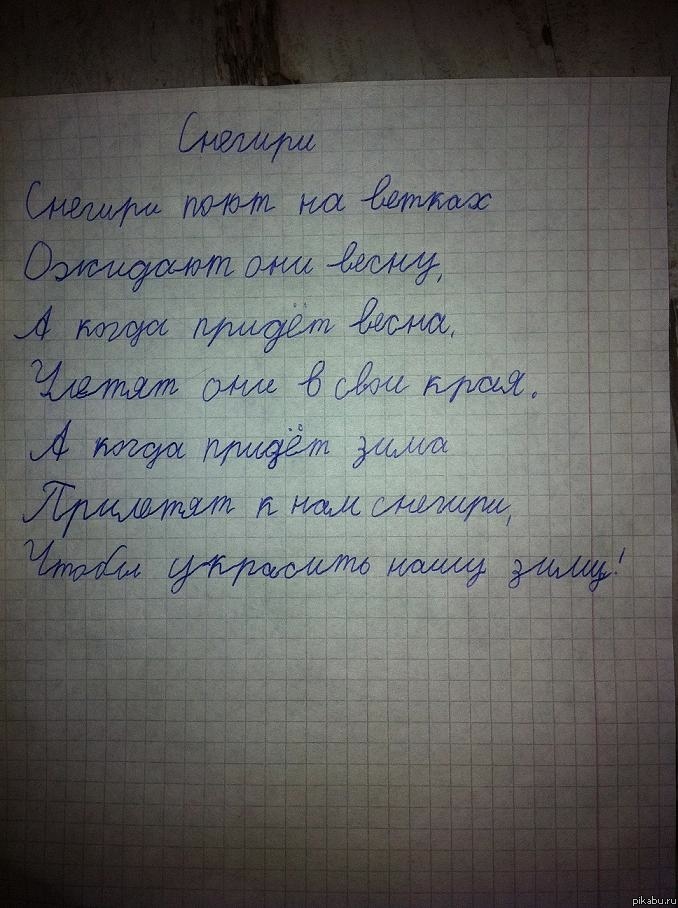 Снегири
Снегири поют на ветках
Ожидают они весну,
А когда придёт весна,
Улетят они в свои края.
А когда придёт зима
Прилетят к нам снегири,
Чтобы украсить нашу зиму!
pikabu.ru